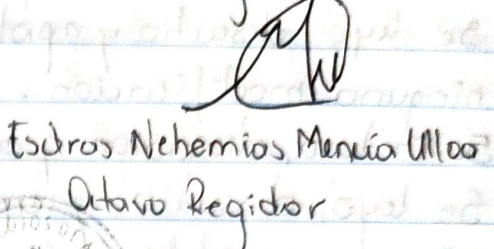 Esdras Nehemias Mencía Ulloa
Octavo Regidor